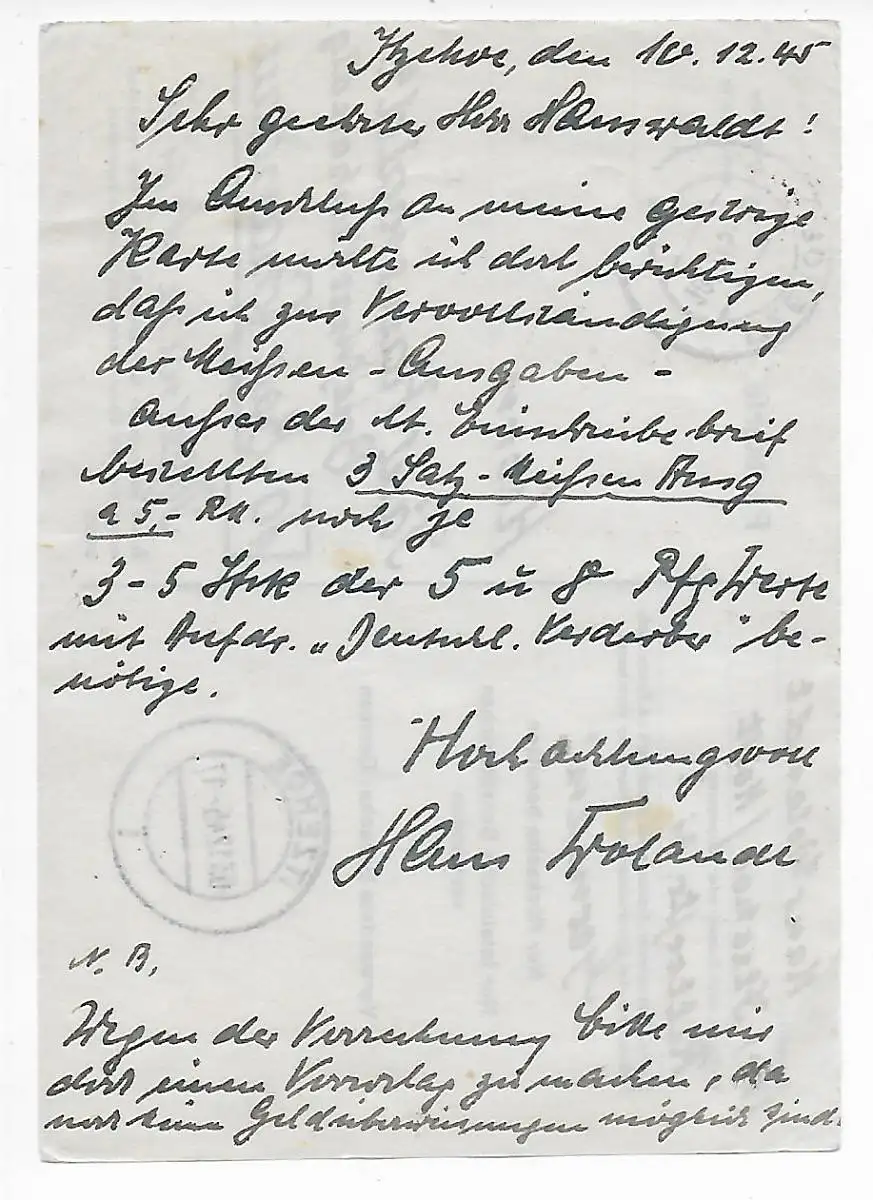 Itzehoe, den 10.12.45
Sehr geehrter Herr Hanswaldt!
Im Anschluß an meine gestrige
Karte möchte ich doch berichtigen,
daß ich zur Vervollständigung
der Meißen-Ausgaben-
außer der lt. Einschreibebrief
bestellten 3 Satz-Meißen Ausg
a 5,- RM. noch je
3-5 Stck der 5 u 8 Pfg Werte
mit Aufdr. „Deutschl. Verderber" be-
nötige.
Hochachtungsvoll
Hans
ITZEHOE
N. B.
Wegen der Verrechnung bitte mir
dort einen Vorschlag zu machen, da
noch keine Geldüberweisungen möglich sind.